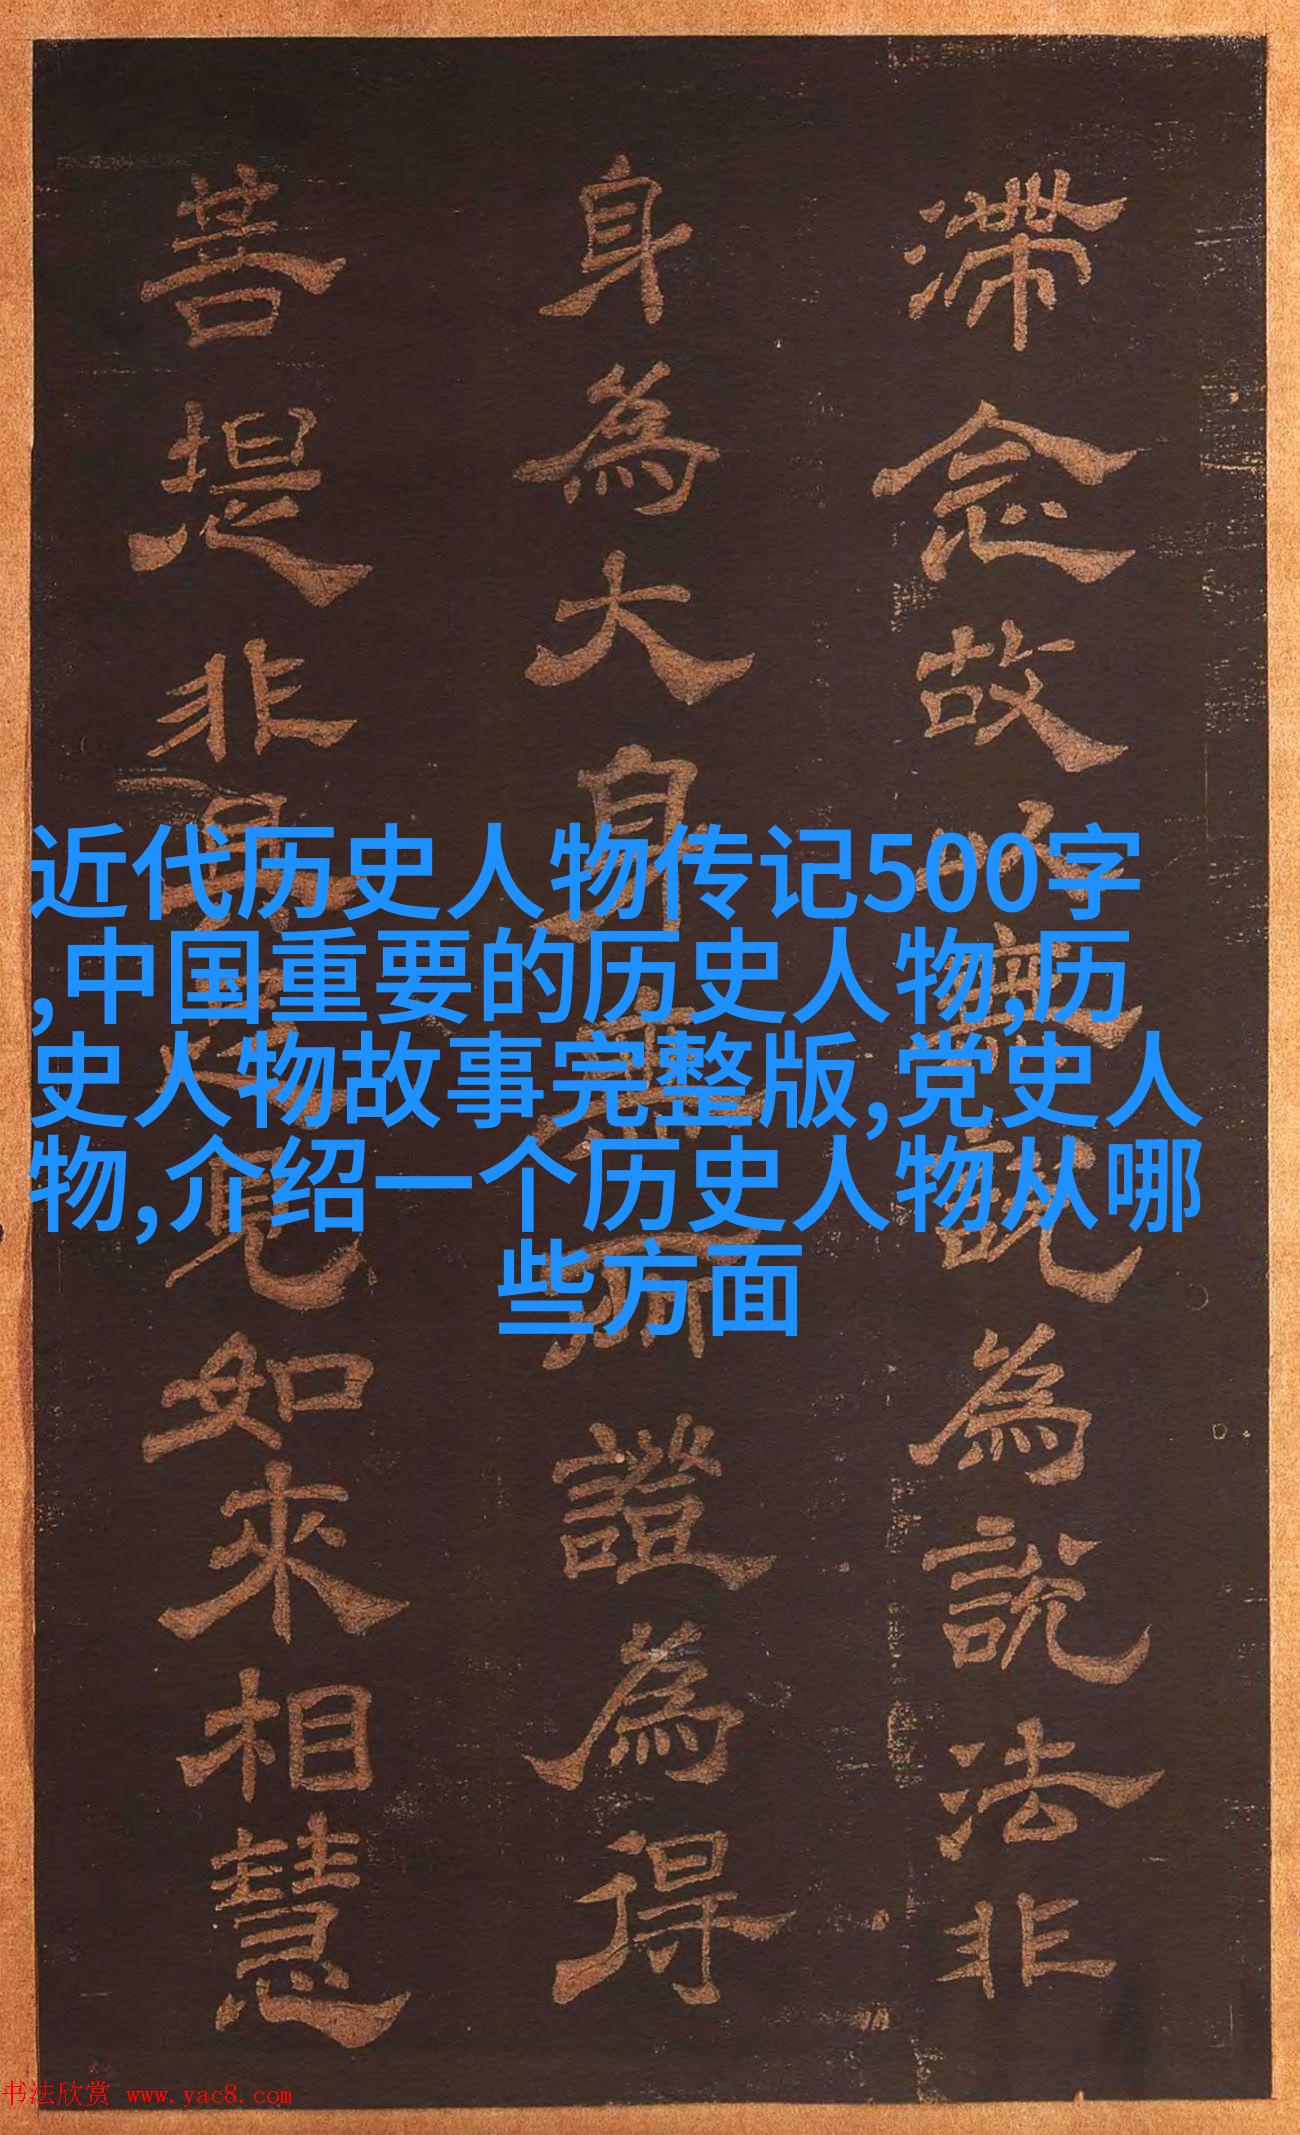 近代历史人物传记500字
,中国重要的历史人物,历
史人物故事完整版,党史人
物,介绍一个历史人物从哪
些方面
滯念故以無說為說法非
身為大身無所證為得
菩提非見如來相慧
书法欣赏 www.yac8.com